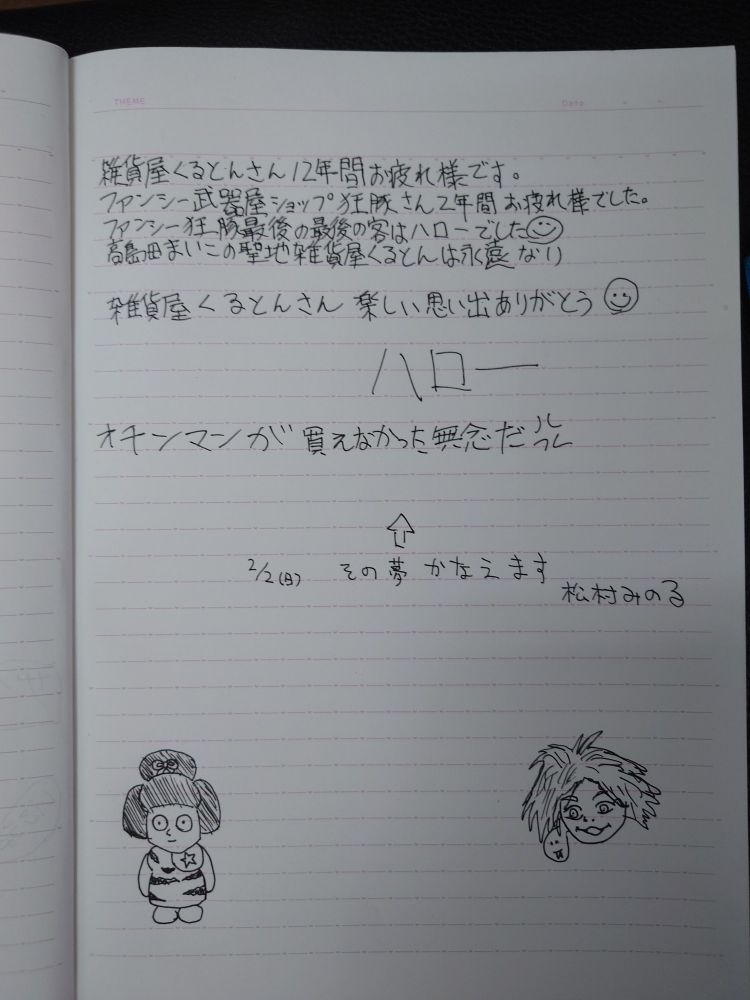 THEME
Date
雑貨屋くるとんさん12年間お疲れ様です。
ファンシー武器屋ショップ狂豚さん2年間お疲れ様でした。
ファンシー狂豚最後の最後の客はハローでした
高島田まいこの聖地雑貨屋くるとんは永遠なり
雑貨屋くるとんさん楽しい思い出ありがとう
ハロー
オチンマンが買えなかった無念だ
2/2(日) その夢かなえます
松村みのる